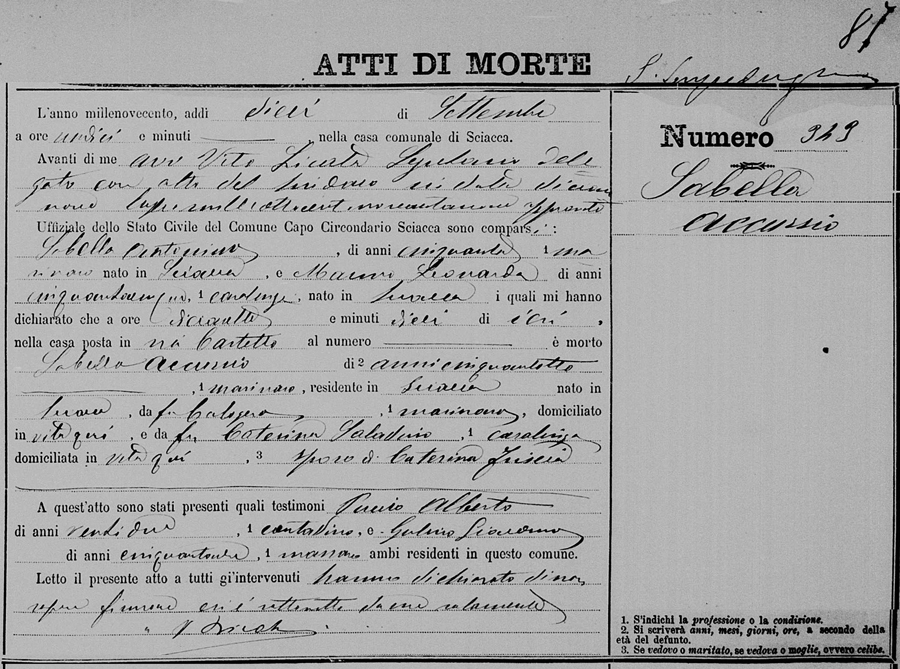 87
ATTI DI MORTE
L'anno millenovecento, addì dieci di Settembre
a ore undici e minuti , nella casa comunale di Sciacca.
Avanti di me avv Vito Licata
con atto del Sindaco in data
Uffiziale dello Stato Civile del Comune Capo Circondario Sciacca sono comparsi:
Sabella Antonino, di anni cinquanta, 1 ma
rinaro nato in Sciacca, e Leonarda di anni
1 casalinga, nato in Sciacca i quali mi hanno
dichiarato che a ore e minuti dieci di ieri,
nella casa posta in via al numero è morto
Sabella Accursio di 2 anni cinquantotto
, 1 marinaro, residente in Sciacca nato in
Sciacca, da fu Calogero, 1 marinaro, domiciliato
in vita qui, e da fu Caterina Saladino, 1 casalinga
domiciliata in vita qui, 3 sposo di Caterina Friscia
A quest'atto sono stati presenti quali testimoni Puccio Alberto
di anni ventidue, 1 contadino, e Gulino Giacomo
di anni, 1 massaro ambi residenti in questo comune.
Letto il presente atto a tutti gi'intervenuti hanno dichiarato di non
sapere firmare
Numero 323
Sabella
Accursio
1. S'indichi la professione o la condizione.
2. Si scriverà anni, mesi, giorni, ore, a secondo della
età del defunto.
3. Se vedovo o maritato, se vedova o moglie, ovvero celibe.